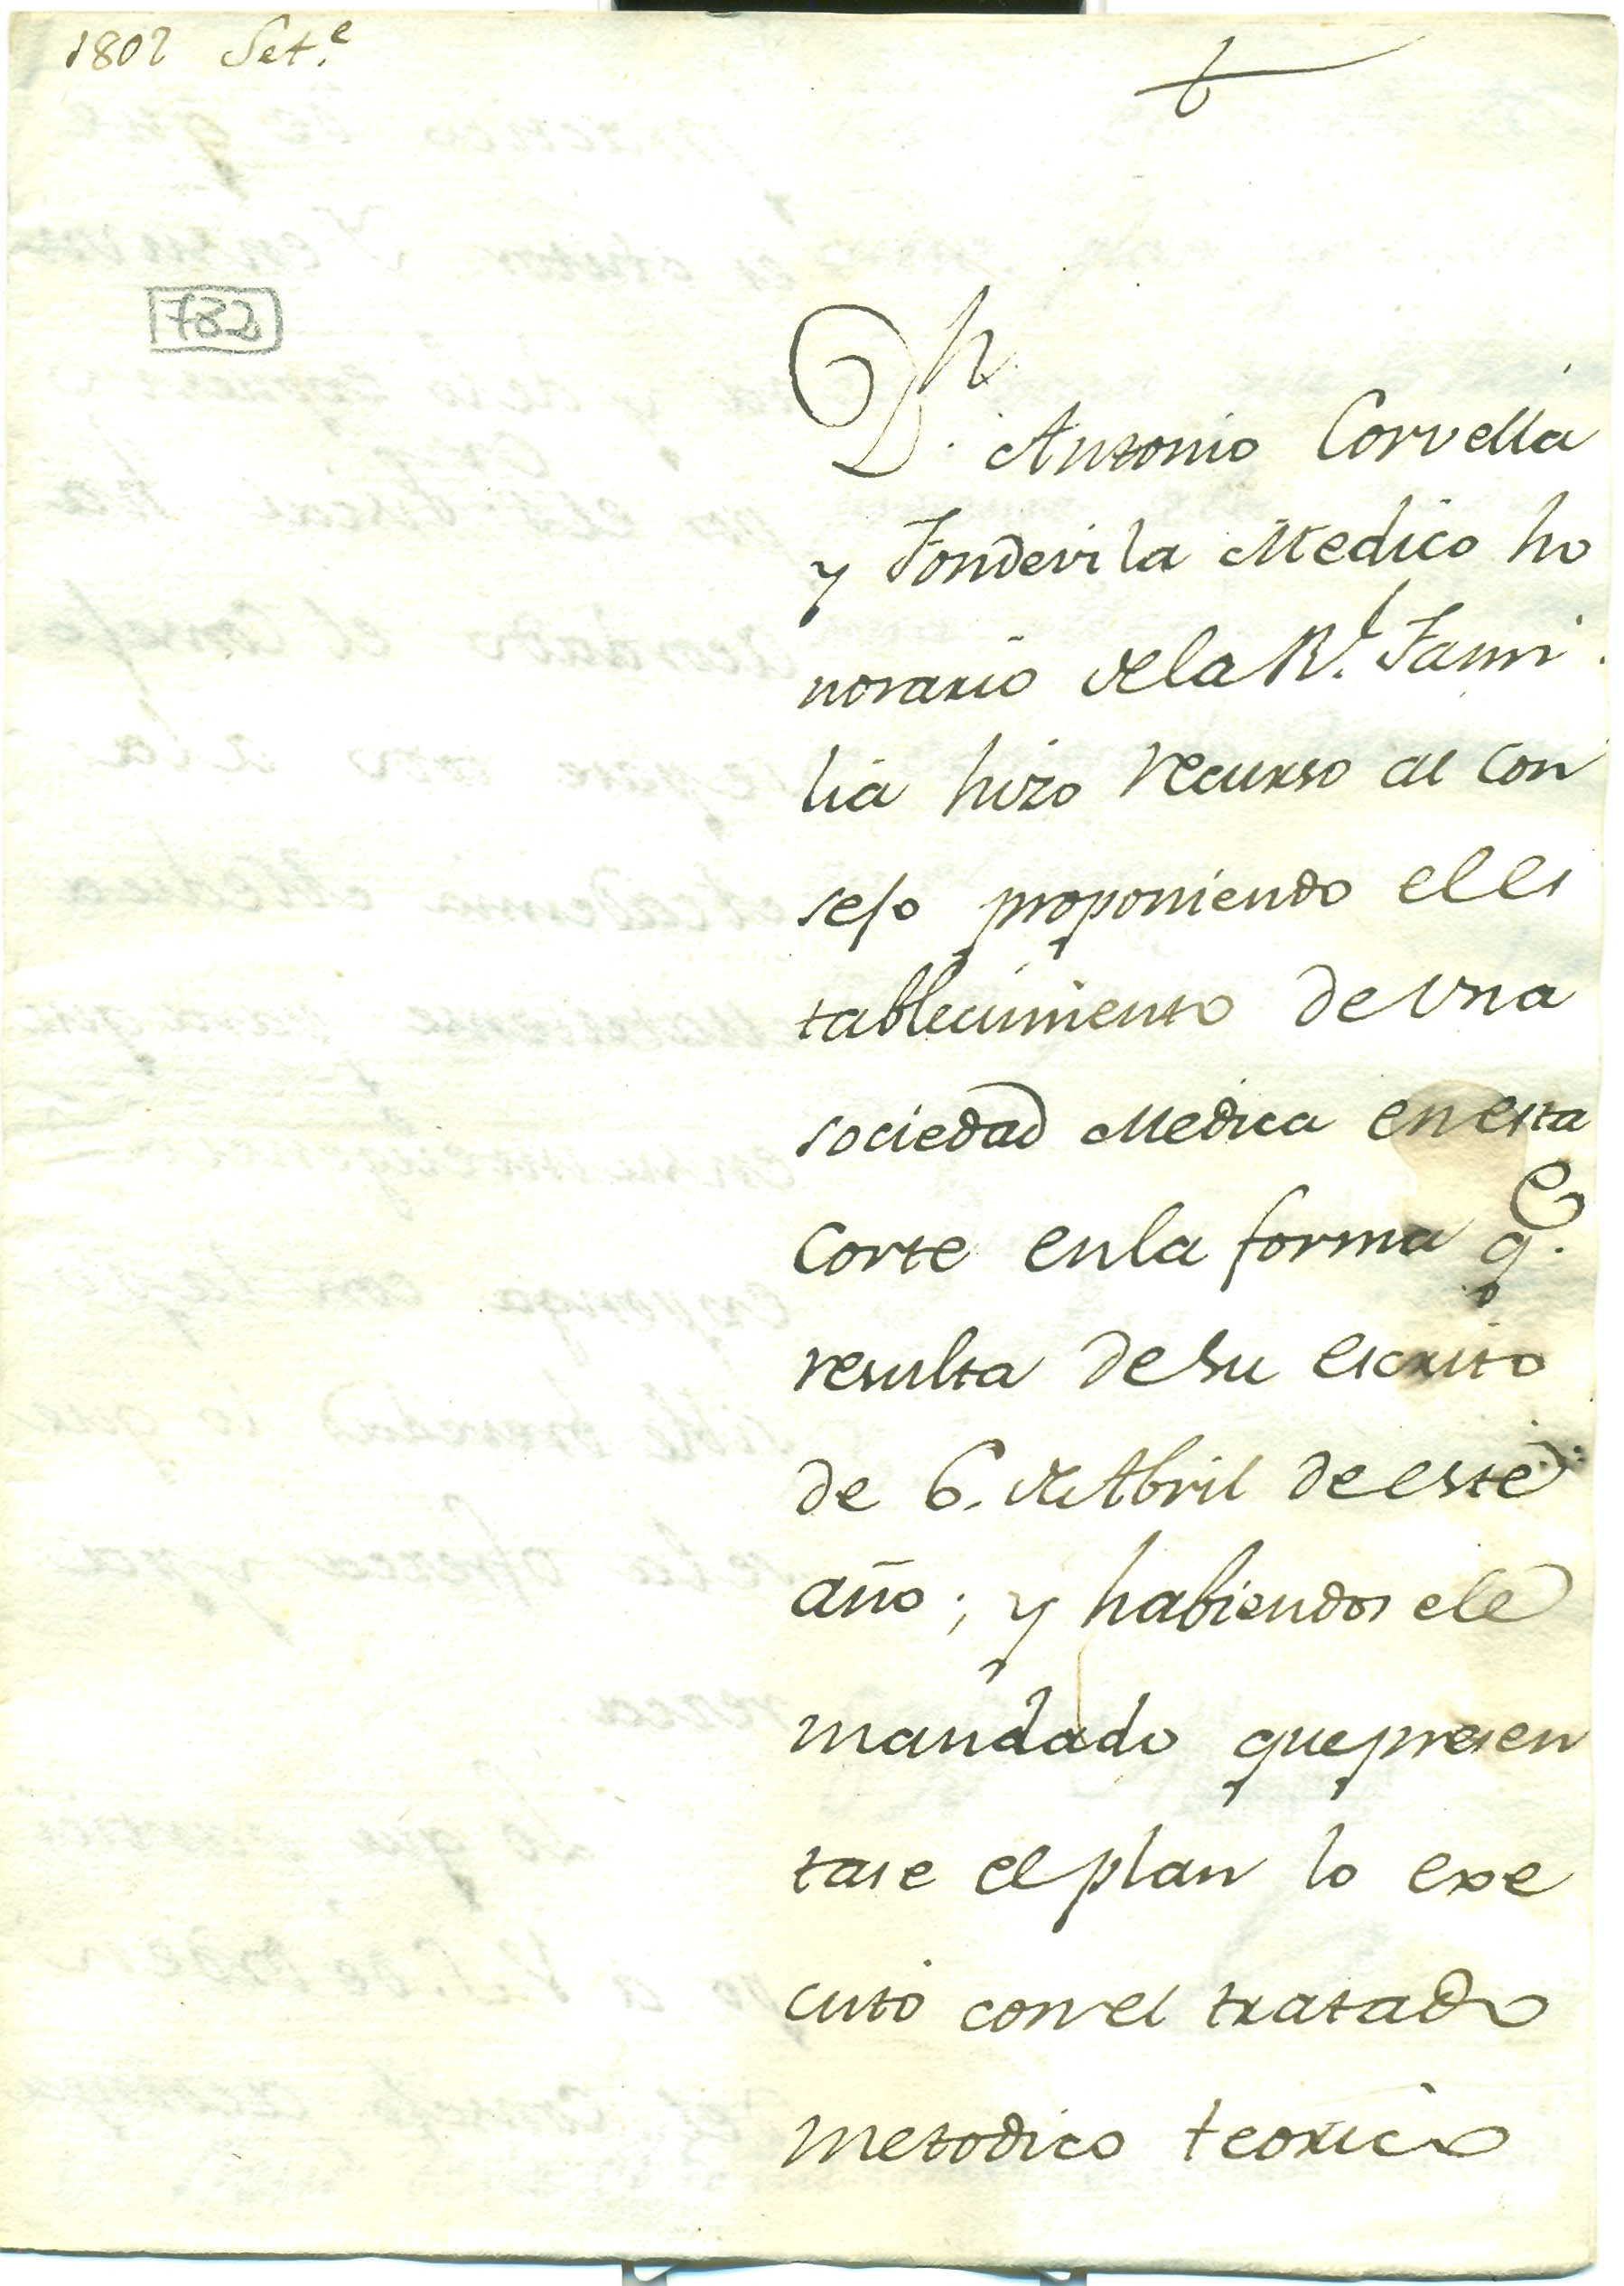 1802 Set.e
782
Dn. Antonio Corvella
y Fondevila Medico ho
norario dela Rl. Fami
lia hizo recurso al con
sejo proponiendo el es
tablecimiento de una
sociedad Medica en esta
Corte en la forma q.e
resulta de su escrito
de 6. de Abril de este
año; y habiendosele
mandado que presen
tase el plan lo exe
cutó con el tratado
metodico teorico